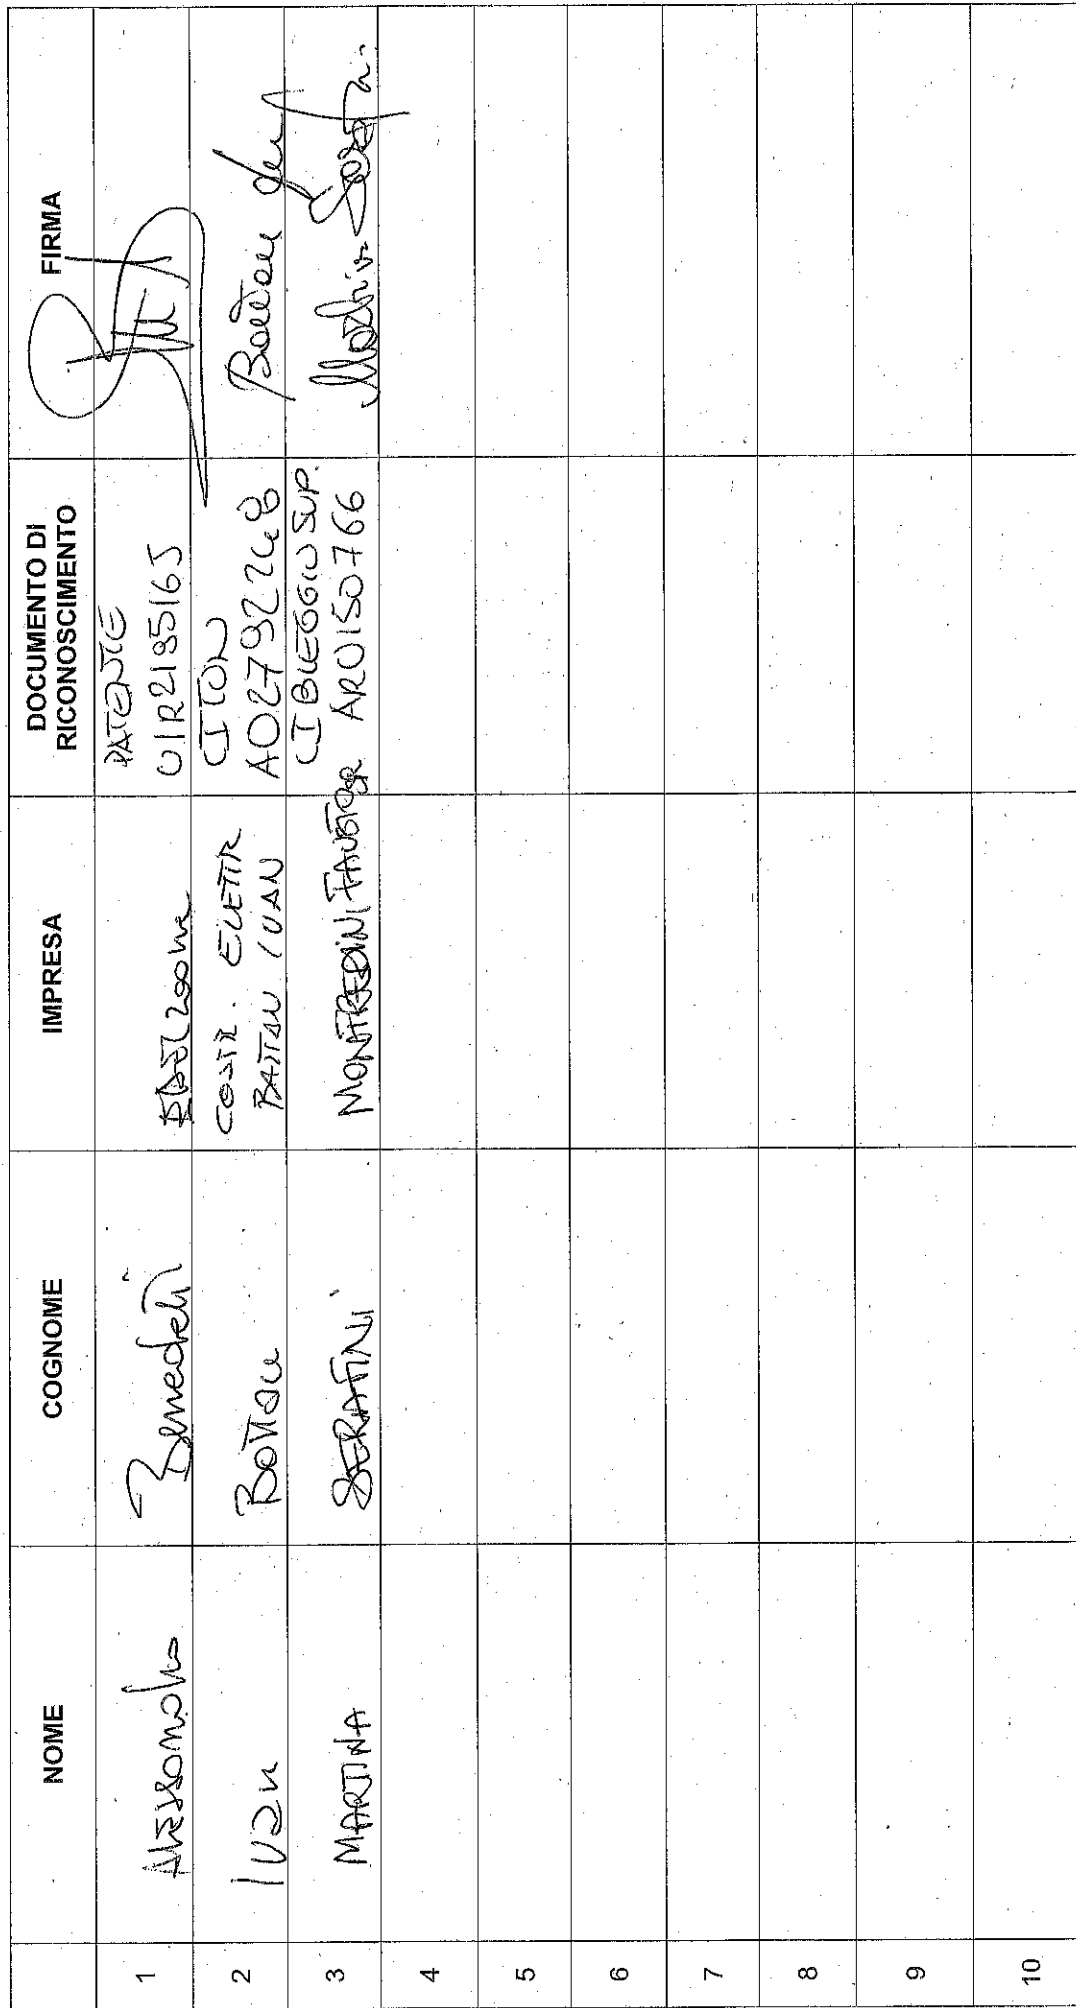 NOME COGNOME IMPRESA DOCUMENTO DI RICONOSCIMENTO FIRMA
1 Alessandro Benedetti PATENTE
2 Ivan Battan COSTR. ELETTR BATTAN IVAN CI TON AO2792248 Battan
3 MARTINA SERAFINI MONFREDINI FAUSTO CI BLEGGIO SUP. AR0150766 Martina Serafini
4
5
6
7
8
9
10